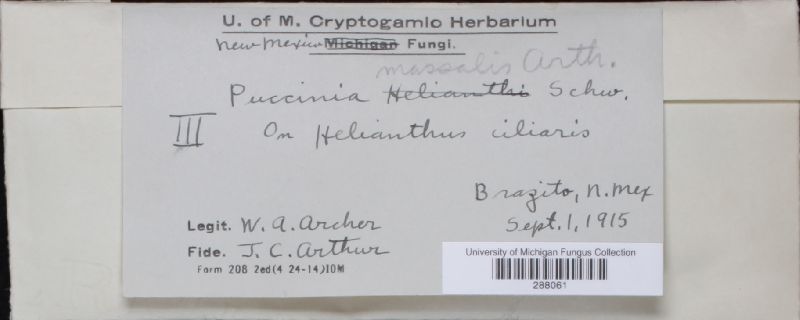 U. of M. Cryptogamic Herbarium
New Mexico Michigan Fungi.
massalis Arth.
Puccinia Helianthi Schw.
III
On Helianthus ciliaris
Brazito, N. Mex
Sept. 1, 1915
Legit. W. A. Archer
Fide. J. C. Arthur
Form 208 2ed(4 24-14)10M
University of Michigan Fungus Collection
288061